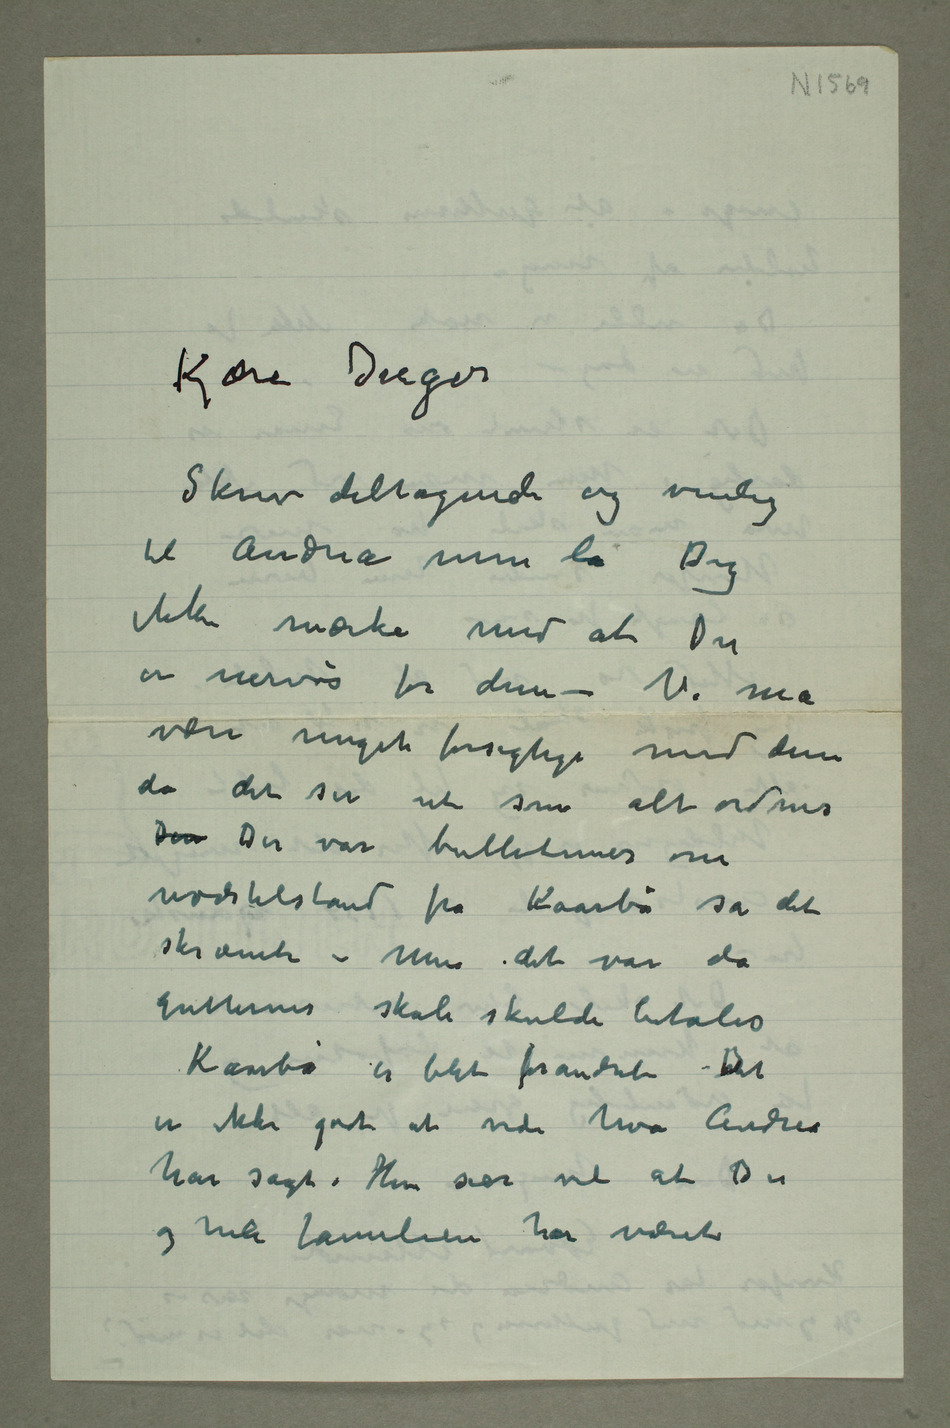 N1569
Kjære Inger
Skriv deltagende og venlig
til Andrea men la Dig
ikke mærke med at Du
er nervøs for dem – Vi ma
være meget forsigtige med dem
da det ser ut som alt ordnes
Den Der var bulletiner om
nødstilstand fra Kaarbø sa det
skræmte – Men det var da
gutternes skole skulde betales
Kaarbø er blet forandret – Det
er ikke godt at vide hva Andrea
har sagt. Hun sier vel at Du
og hele familien har været